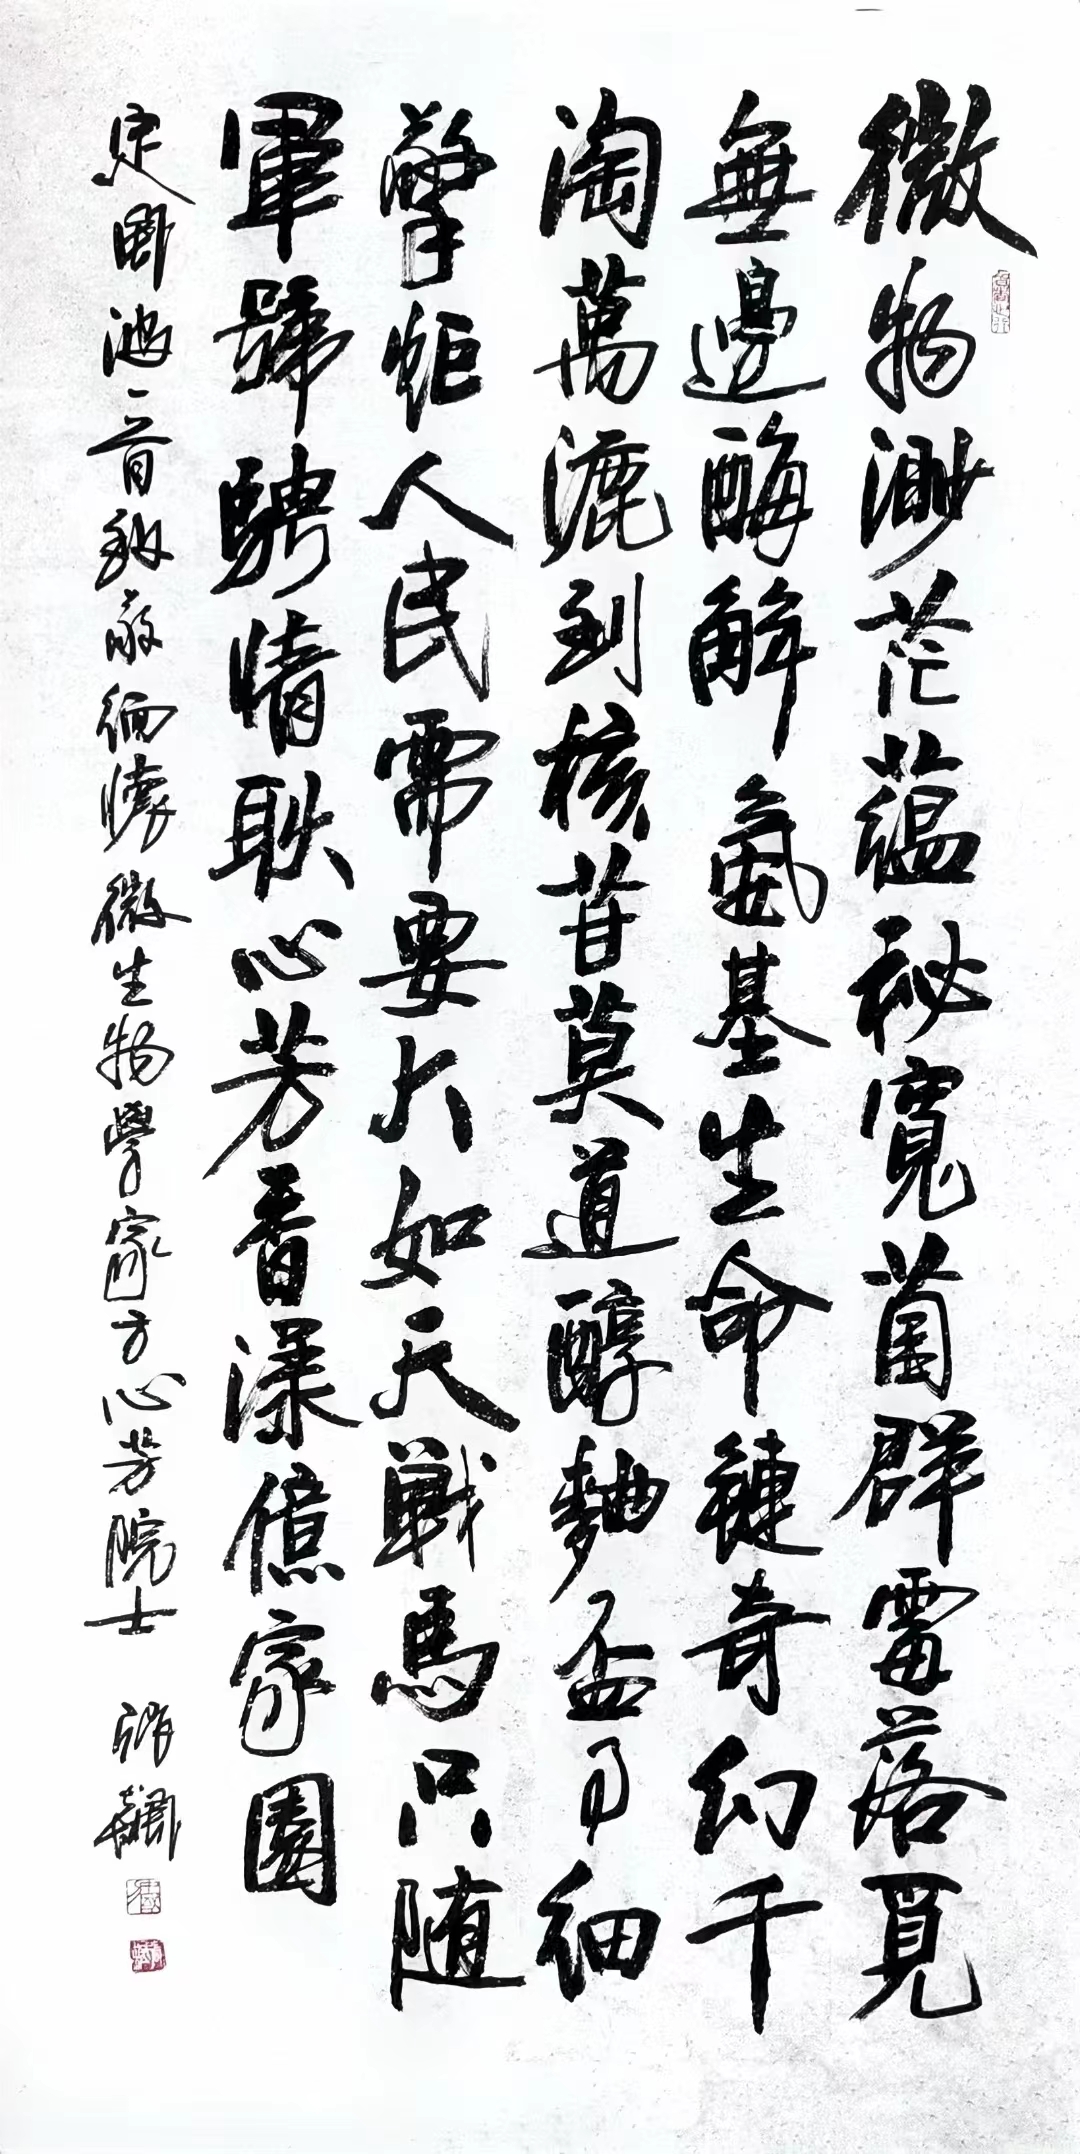 微物渺茫蘊秘寬菌群雷落覓
無邊酶解氨基生命鏈奇幻千
淘萬漉到核苷莫道醇麯盃事細
擎炬人民需要大如天戰馬只随
軍號騁情耿心芳香漾億家園
定風波一首敬緬懷微生物學家方心芳院士 張飆